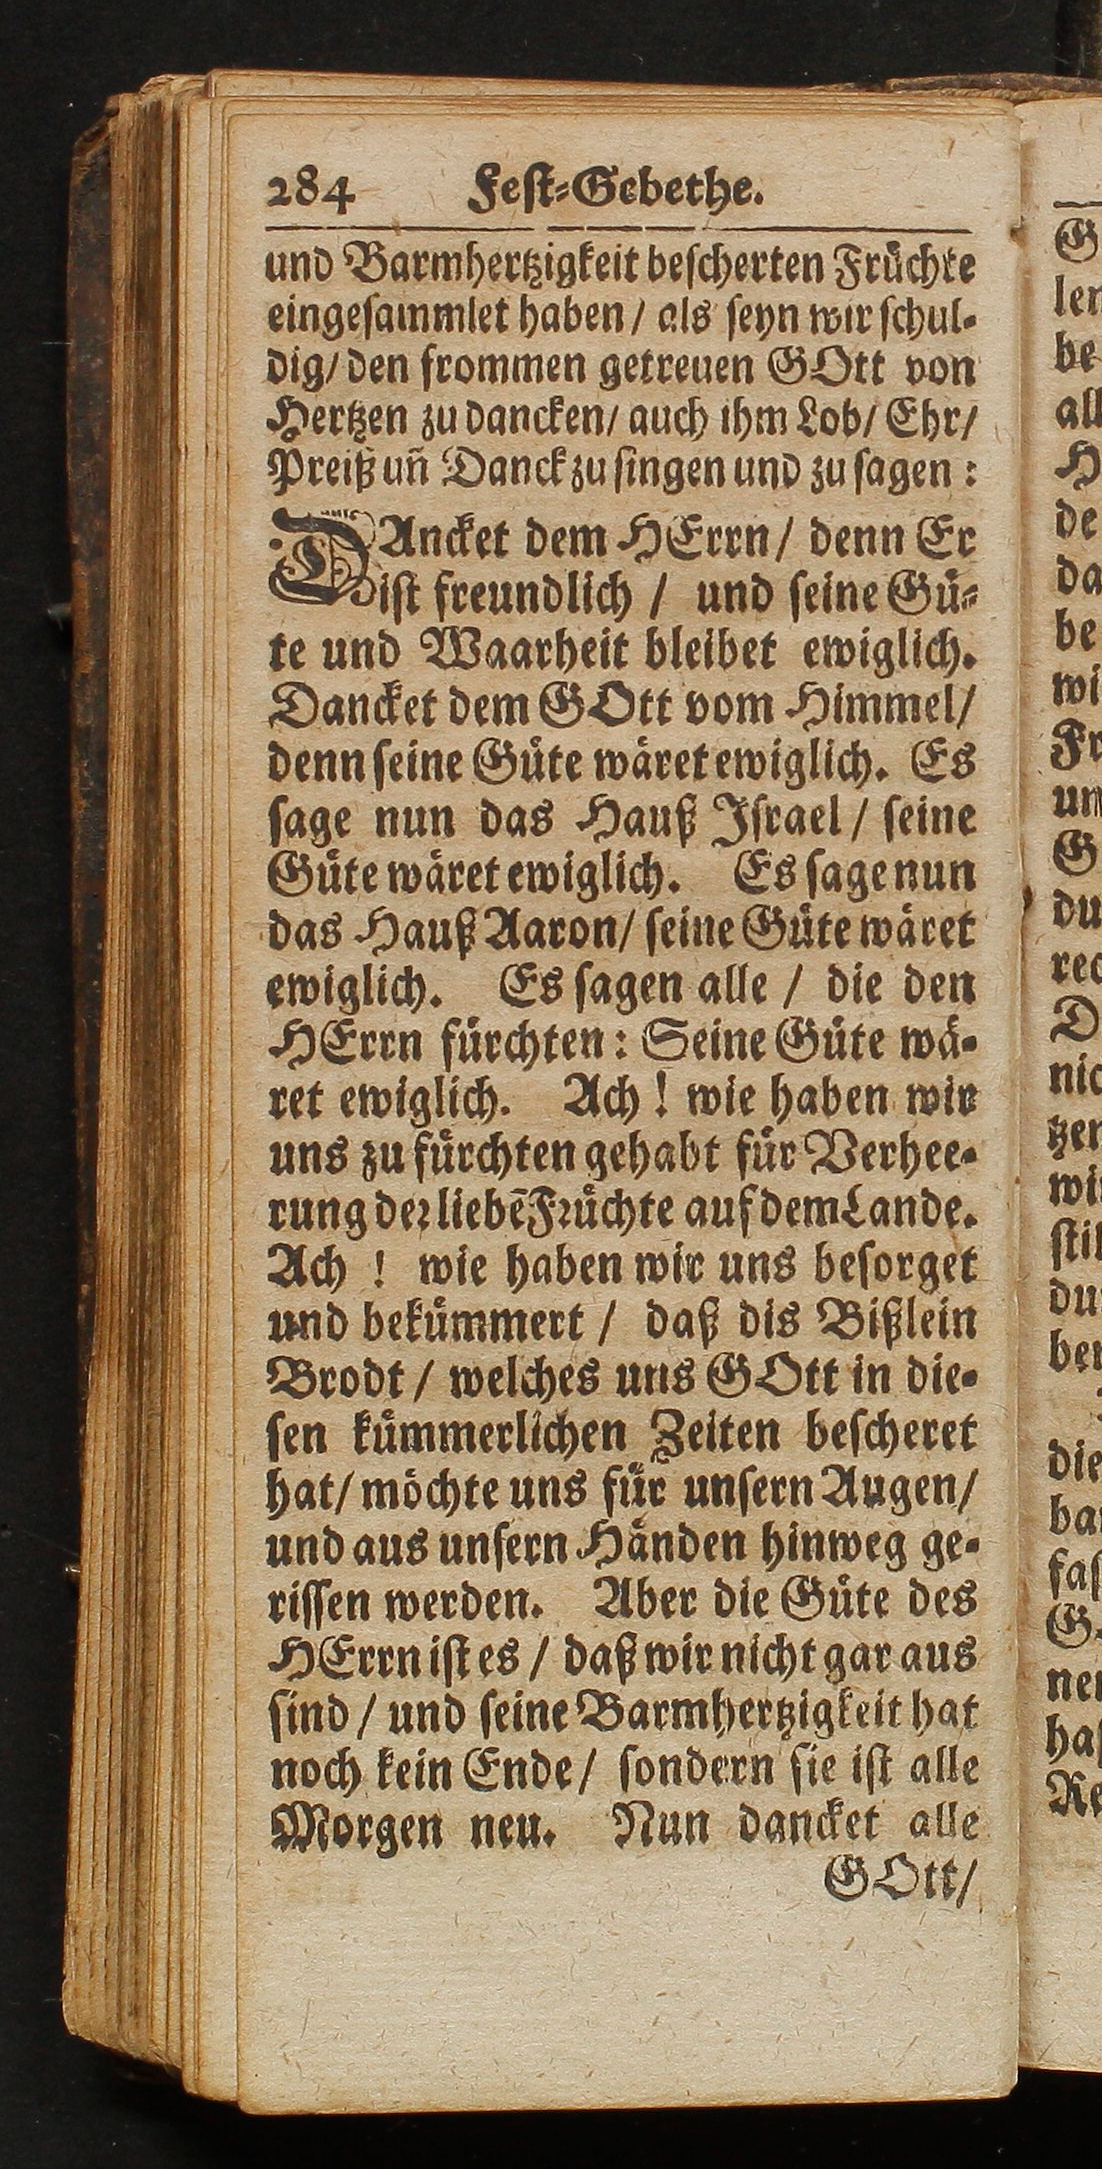 284 Feſt-Gebethe.
und Barmhertzigkeit beſcherten Fruͤchte
eingeſammlet haben / als ſeyn wir ſchul-
dig / den frommen getreuen GOtt von
Hertzen zu dancken / auch ihm Lob / Ehr /
Preiß uñ Danck zu ſingen und zu ſagen :
DAncket dem HErrn / denn Er
iſt freundlich / und ſeine Guͤ-
te und Waarheit bleibet ewiglich.
Dancket dem GOtt vom Himmel /
denn ſeine Guͤte waͤret ewiglich. Es
ſage nun das Hauß Iſrael / ſeine
Guͤte waͤret ewiglich. Es ſage nun
das Hauß Aaron / ſeine Guͤte waͤret
ewiglich. Es ſagen alle / die den
HErrn fuͤrchten : Seine Guͤte waͤ-
ret ewiglich. Ach ! wie haben wir
uns zu fuͤrchten gehabt fuͤr Verhee-
rung deꝛ liebē Fꝛuͤchte auf dem Lande.
Ach ! wie haben wir uns beſorget
und bekuͤmmert / daß dis Bißlein
Brodt / welches uns GOtt in die-
ſen kuͤmmerlichen Zeiten beſcheret
hat / moͤchte uns fuͤr unſern Augen /
und aus unſern Haͤnden hinweg ge-
riſſen werden. Aber die Guͤte des
HErrn iſt es / daß wir nicht gar aus
ſind / und ſeine Barmhertzigkeit hat
noch kein Ende / ſondern ſie iſt alle
Morgen neu. Nun dancket alle
GOtt /